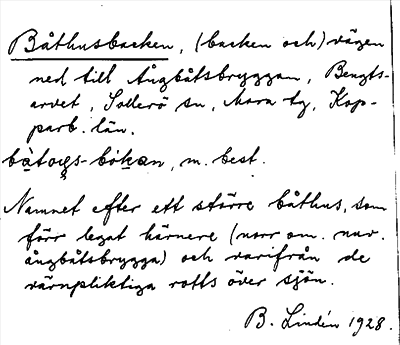 Båthusbacken, (backen och) vägen
ned till Ångbåtsbryggan, Bengts-
arvet, Sollerö sn, Mora tg, Kop-
parb. län.
m. best.
Namnet efter ett större båthus, som
förr legat härnere (norr om nuv.
ångbåtsbrygga) och varifrån de
värnpliktiga rotts över sjön.
B. Lindén 1928.